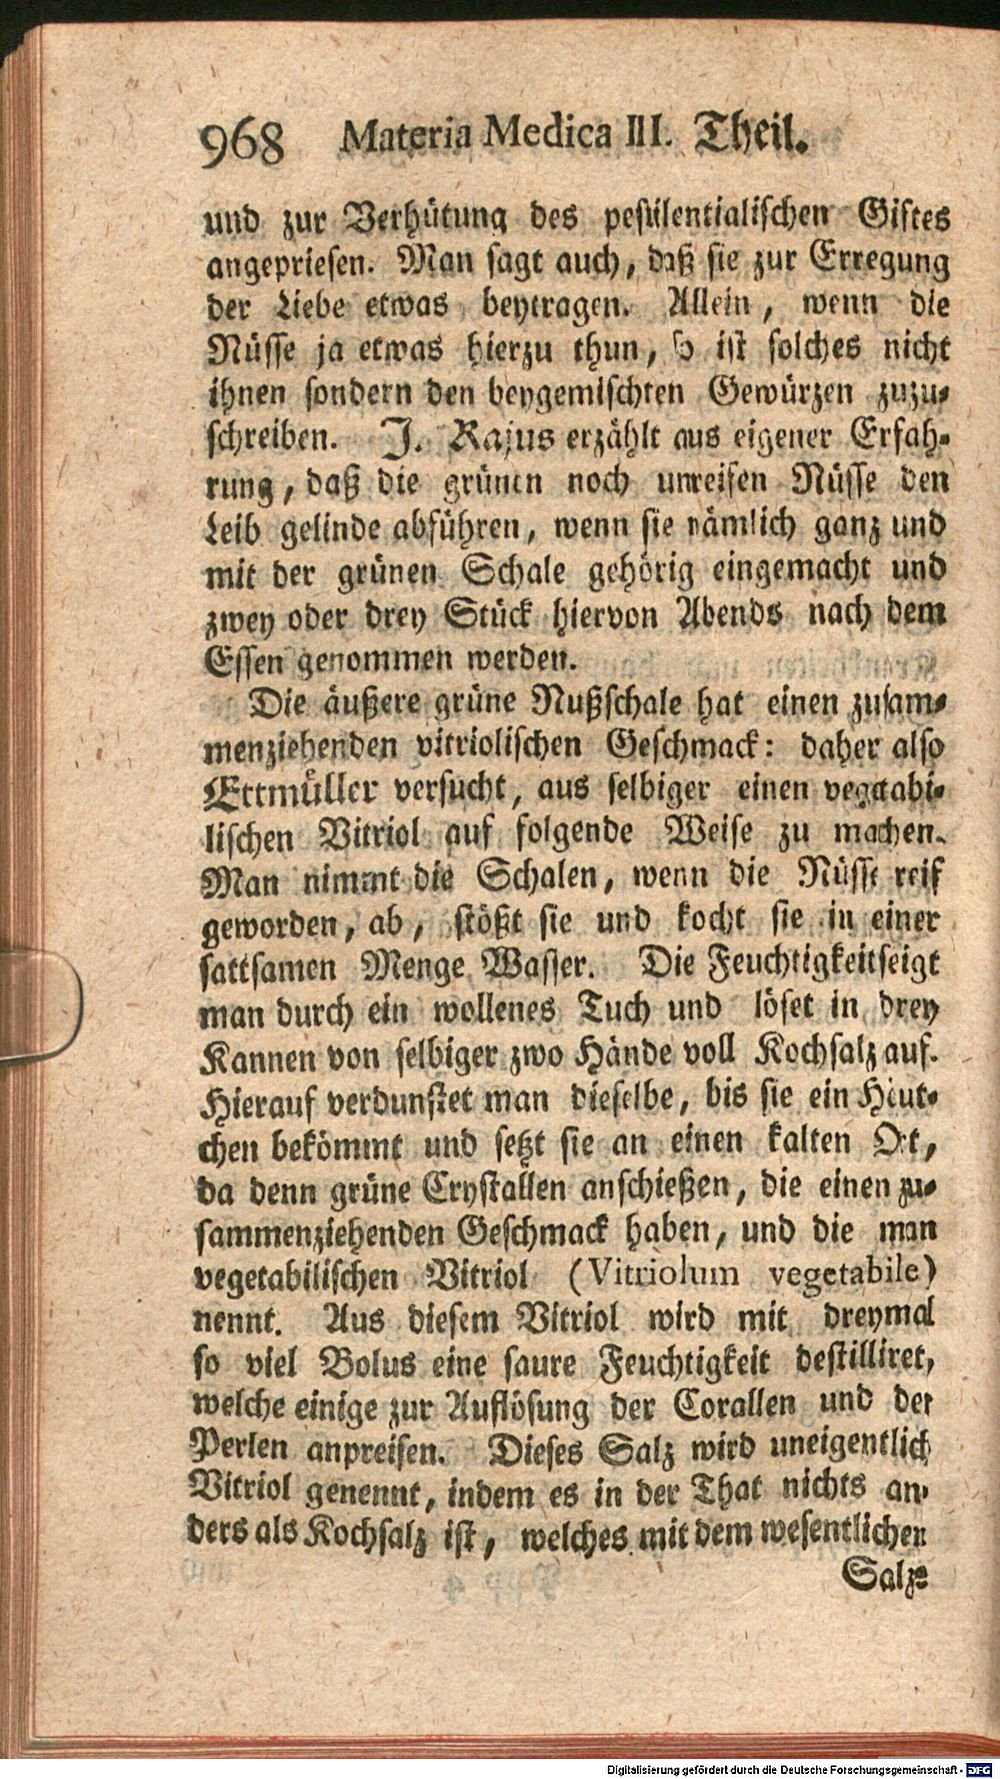 968 Materia Medica III. Theil.
und zur Verhütung des pestilentialischen Giftes
angepriesen. Man sagt auch, daß sie zur Erregung
der Liebe etwas beytragen. Allein, wenn die
Nüsse ja etwas hierzu thun, so ist solches nicht
ihnen sondern den beygemischten Gewürzen zuzu-
schreiben. J. Rajus erzählt aus eigener Erfah-
rung, daß die grünen noch unreifen Nüsse den
Leib gelinde abführen, wenn sie nämlich ganz und
mit der grünen Schale gehörig eingemacht und
zwey oder drey Stück hiervon Abends nach dem
Essen genommen werden.
Die äußere grüne Nußschale hat einen zusam-
menziehenden vitriolischen Geschmack: daher also
Ettmüller versucht, aus selbiger einen vegetabi-
lischen Vitriol auf folgende Weise zu machen.
Man nimmt die Schalen, wenn die Nüsse reif
geworden, ab, stößt sie und kocht sie in einer
sattsamen Menge Wasser. Die Feuchtigkeit seigt
man durch ein wollenes Tuch und löset in drey
Kannen von selbiger zwo Hände voll Kochsalz auf.
Hierauf verdunstet man dieselbe, bis sie ein Heut-
chen bekömmt und setzt sie an einen kalten Ort,
da denn grüne Crystallen anschießen, die einen zu-
sammenziehenden Geschmack haben, und die man
vegetabilischen Vitriol (Vitriolum vegetabile)
nennt. Aus diesem Vitriol wird mit dreymal
so viel Bolus eine saure Feuchtigkeit destilliret,
welche einige zur Auflösung der Corallen und der
Perlen anpreisen. Dieses Salz wird uneigentlich
Vitriol genennt, indem es in der That nichts an-
ders als Kochsalz ist, welches mit dem wesentlichen
Salz-
Digitalisierung gefördert durch die Deutsche Forschungsgemeinschaft - DFG